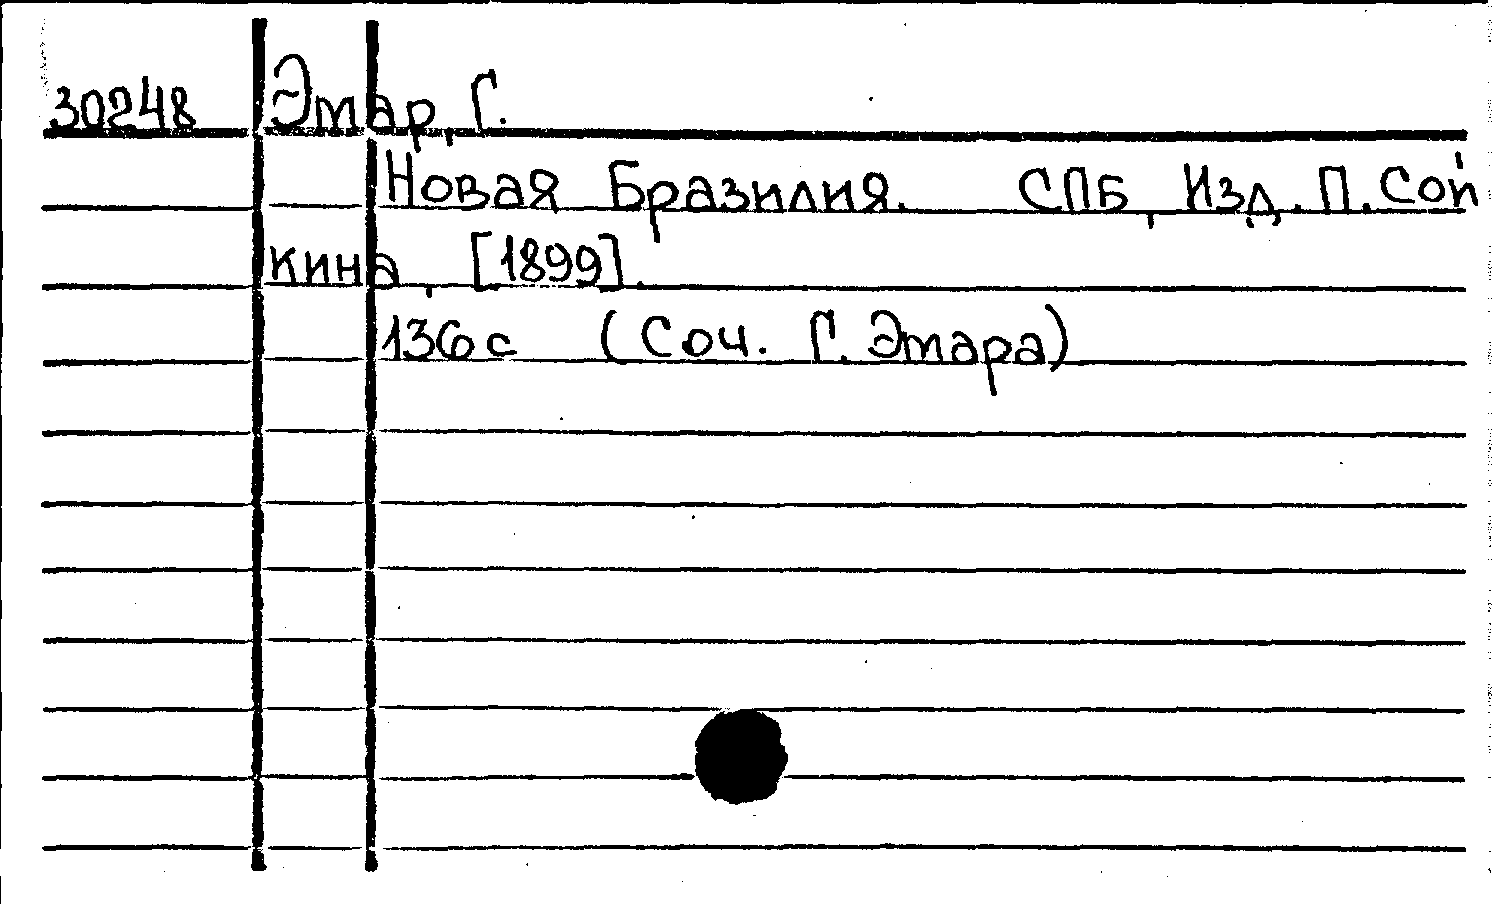 30248 Эмар, Г.
Новая Бразилия. СПБ, Изд. П. Сой
кина, [1899].
136 с (Соч. Г. Эмара)